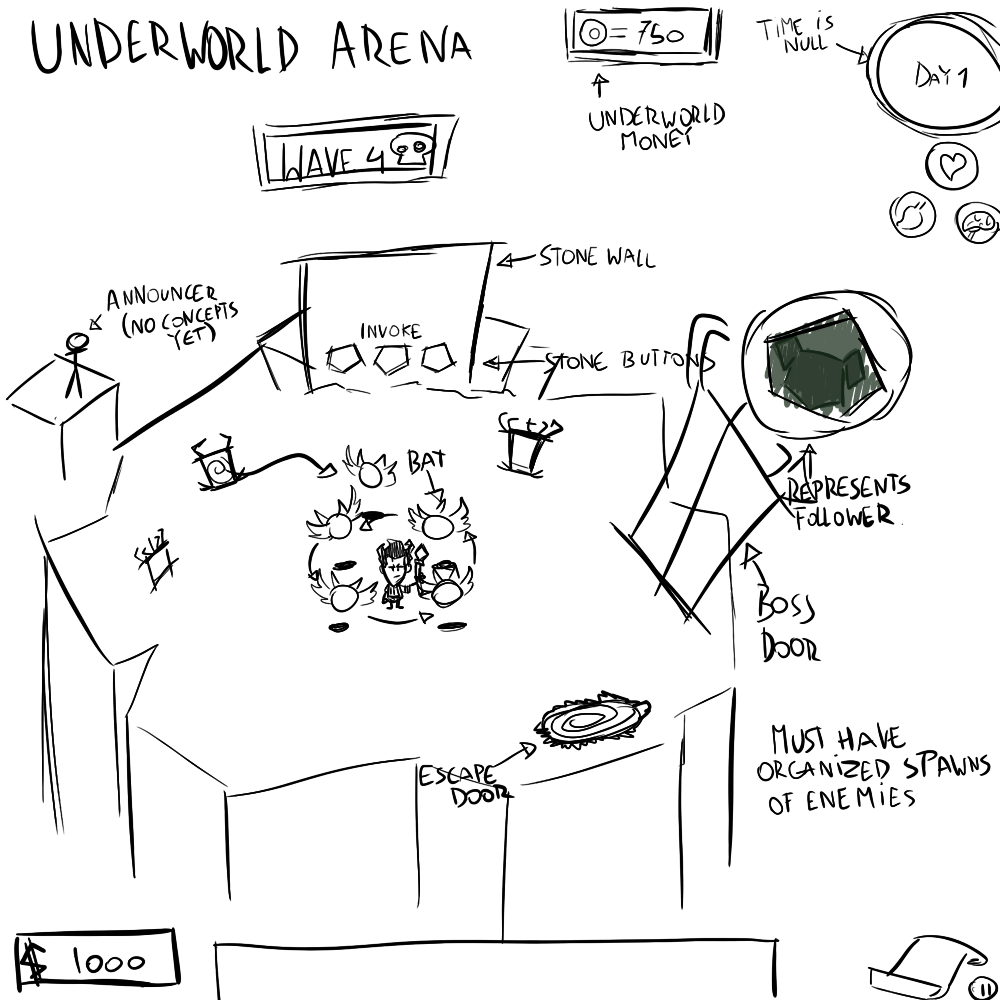 UNDERWORLD ARENA
= 750
TIME IS
NULL
DAY 1
UNDERWORLD
MONEY
WAVE 4
STONE WALL
ANNOUNCER
(NO CONCEPTS
YET)
INVOKE
STONE BUTTONS
BAT
REPRESENTS
FOLLOWER
BOSS
DOOR
MUST HAVE
ORGANIZED SPAWNS
OF ENEMIES
ESCAPE
DOOR
$ 1000